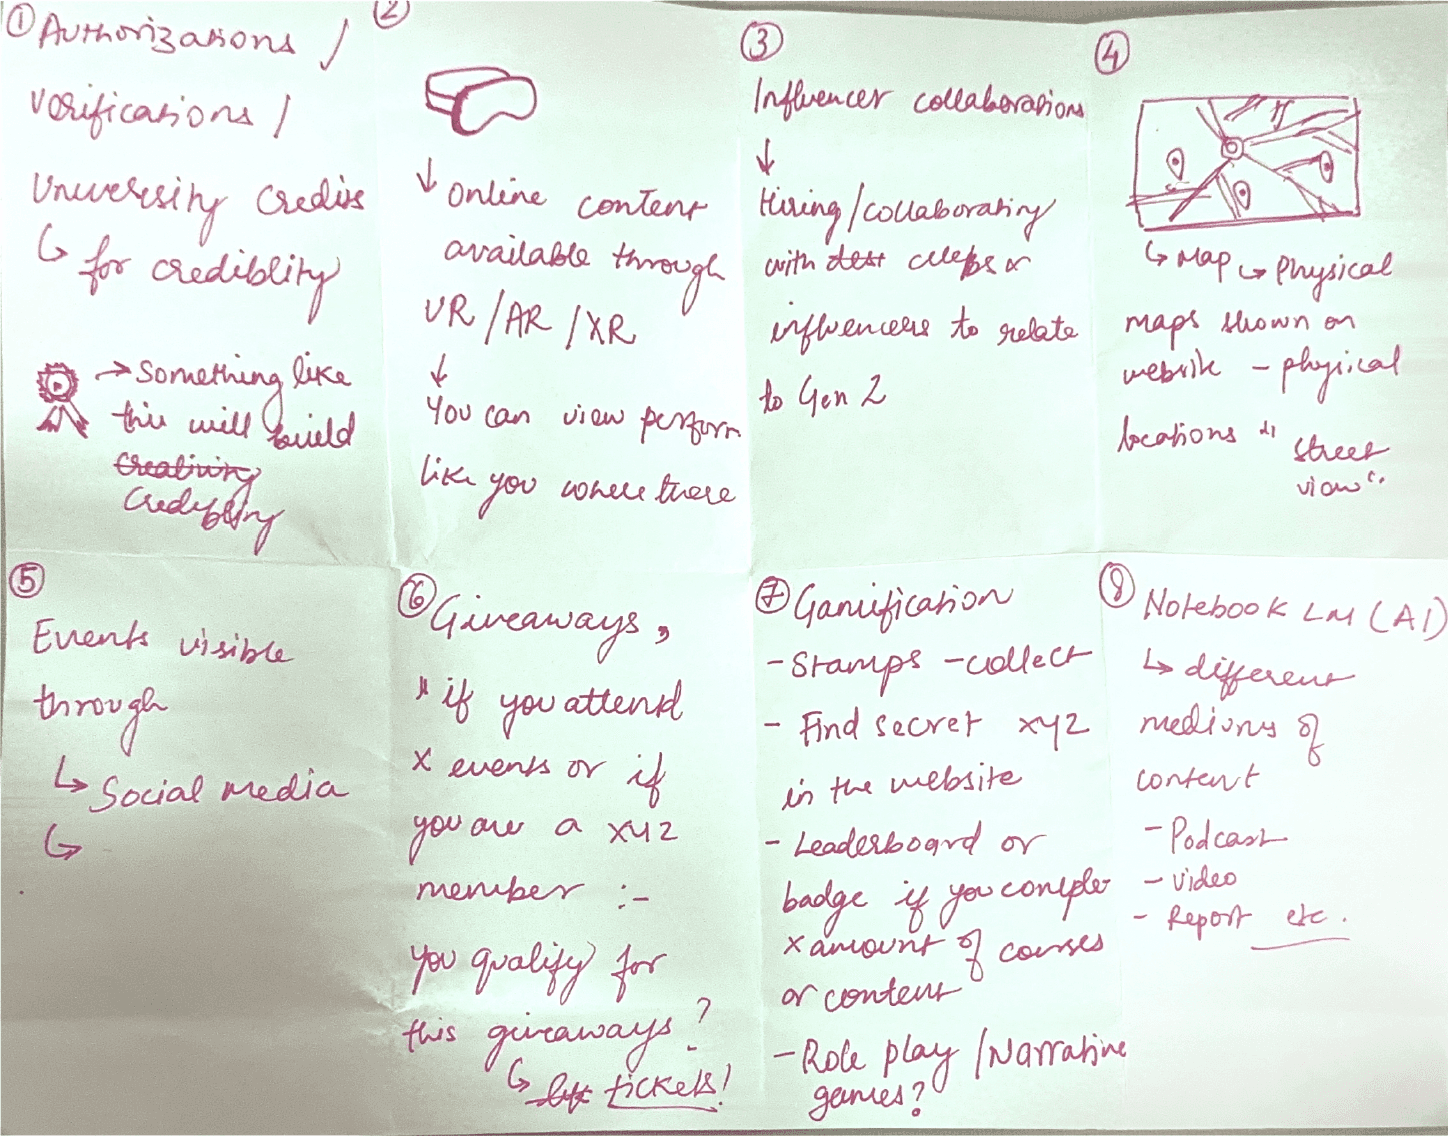 ① Authorizations /
verifications /
University credits
↳ for crediblity
→ Something like
this will build
creativity
Credibility
②
↓ Online content
available through
VR / AR / XR
↓
You can view perform
like you where there
③
Influencer collaborations
↓
Hiring/collaborating
with dest celebs or
influencers to relate
to Gen Z
④
↳ Map ↳ Physical
maps shown on
website - physical
locations "street
view".
⑤
Events visible
through
↳ Social media
↳
⑥ Giveaways,
* if you attend
x events or if
you are a xyz
member :-
you qualify for
this giveaways?
↳ tickets!
⑦ Gamification
- Stamps - collect
- Find secret xyz
in the website
- Leaderboard or
badge if you complete
x amount of courses
or content
- Role play / Narrative
games?
⑧ Notebook LM (AI)
↳ different
mediums of
content
- Podcast
- video
- Report etc.